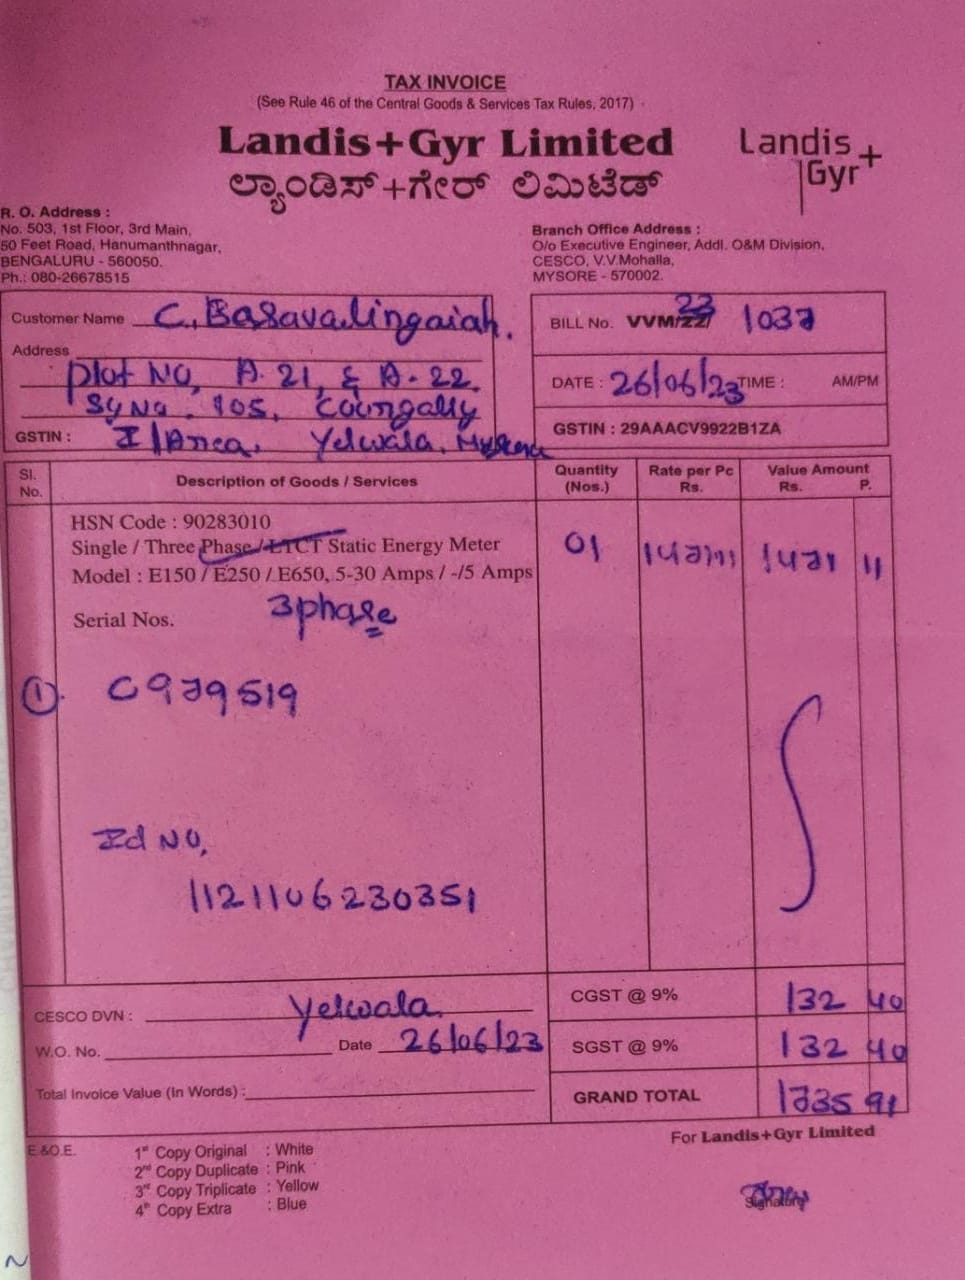 TAX INVOICE
(See Rule 46 of the Central Goods & Services Tax Rules, 2017)
Landis+Gyr Limited
ಲ್ಯಾಂಡಿಸ್+ಗೇರ್ ಲಿಮಿಟೆಡ್
Landis
Gyr+
R. O. Address :
No. 503, 1st Floor, 3rd Main,
50 Feet Road, Hanumanthnagar,
BENGALURU - 560050.
Ph.: 080-26678515
Branch Office Address :
O/o Executive Engineer, Addl. O&M Division,
CESCO, V.V.Mohalla,
MYSORE - 570002.
Customer Name C. Basavalingaiah.
Address
Plot NO, A-21, & A-22.
Sy No. 105, Coorgally
GSTIN : I/Area, Yelwala,
BILL No. VVM/22/ 23 1037
DATE : 26/06/23 TIME : AM/PM
GSTIN : 29AAACV9922B1ZA
Sl. No. Description of Goods / Services Quantity (Nos.) Rate per Pc Rs. Value Amount Rs. P.
HSN Code : 90283010
Single / Three Phase / LTCT Static Energy Meter 01 1471 11
Model : E150 / E250 / E650, 5-30 Amps / -/5 Amps
Serial Nos. 3phase
1. C979519
Id NO,
1121106230351
CGST @ 9% 132 40
CESCO DVN : Yelwala
W.O. No. Date 26/06/23
SGST @ 9% 132 40
Total Invoice Value (In Words) :
GRAND TOTAL 1735 91
For Landis+Gyr Limited
E.&O.E.
1st Copy Original : White
2nd Copy Duplicate : Pink
3rd Copy Triplicate : Yellow
4th Copy Extra : Blue
Signatory